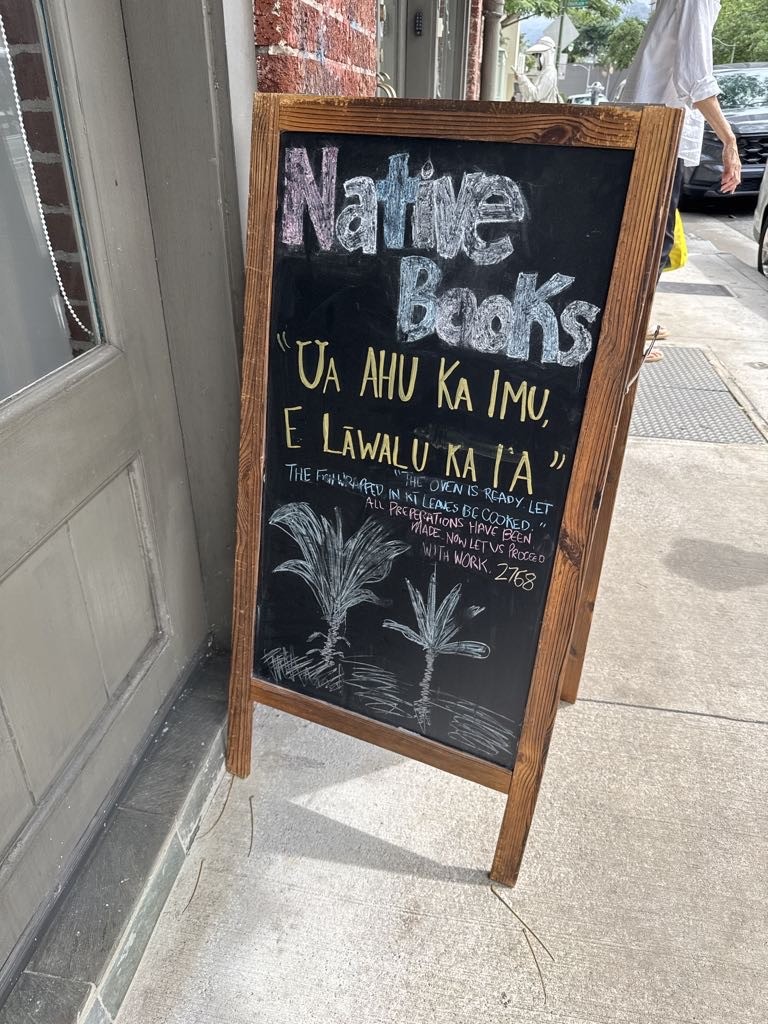 Native
Books
"Ua AHU Ka IMU,
E LāWALU KA I'A"
"THE OVEN IS READY. LET
THE FISH WRAPPED IN KI LEAVES BE COOKED."
ALL PREPERATIONS HAVE BEEN
MADE. NOW LET US PROCEED
WITH WORK. 2768